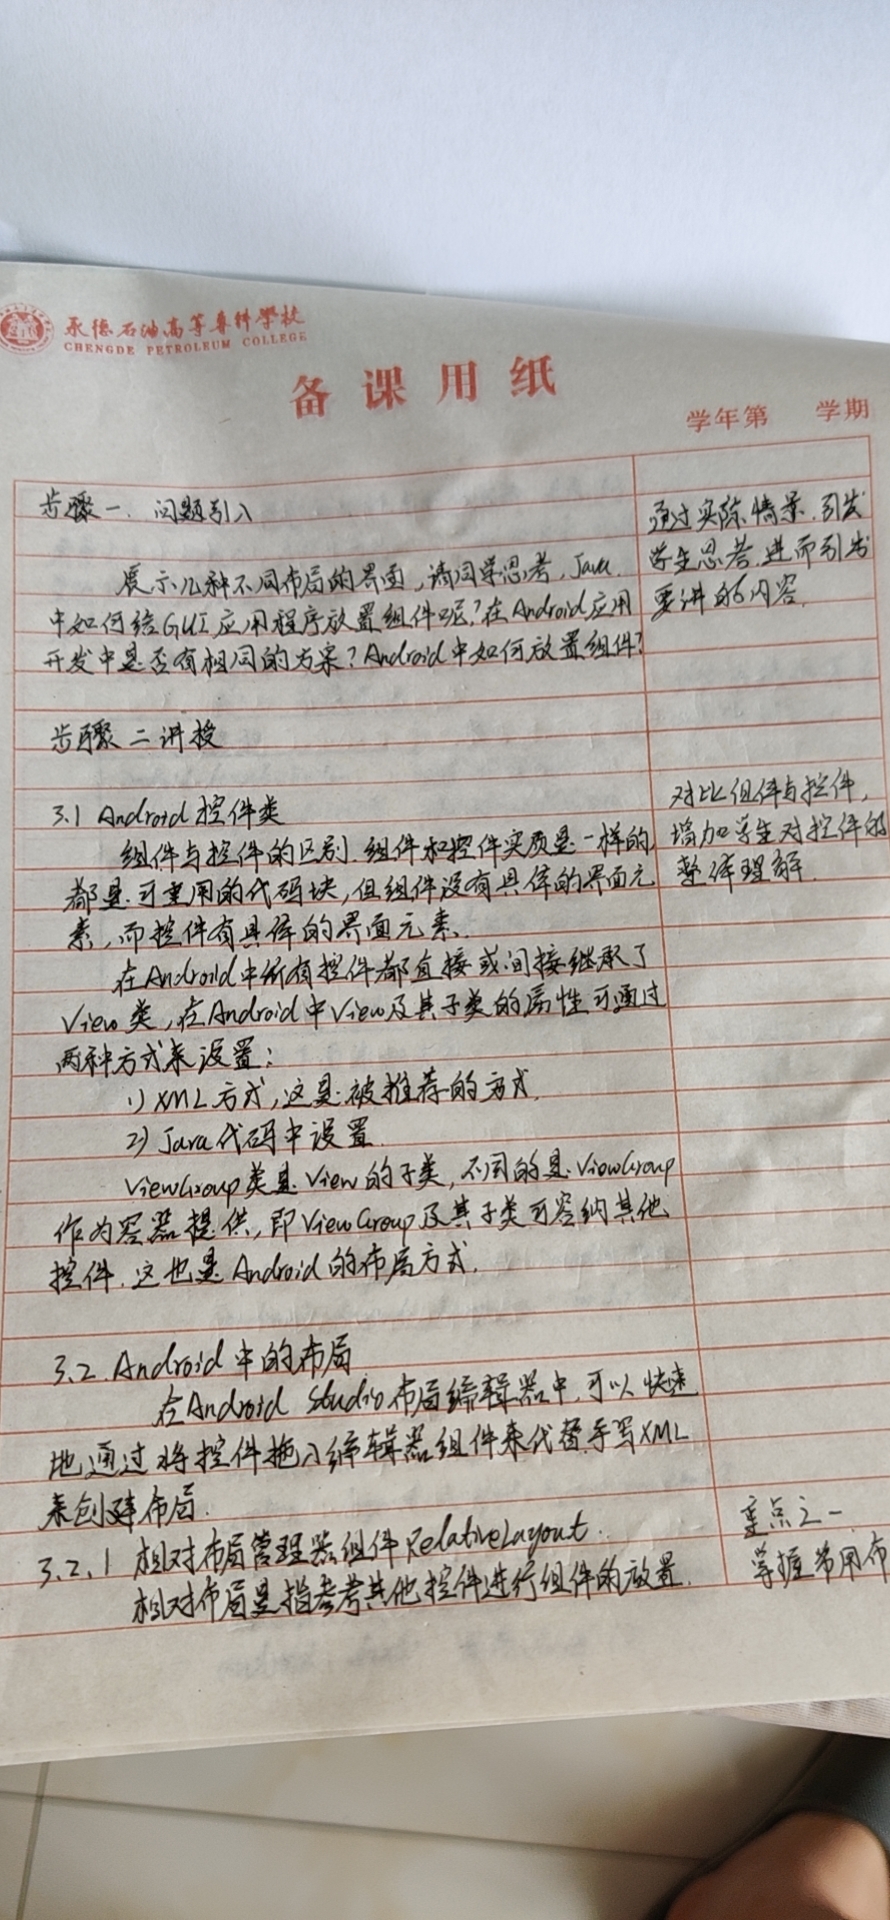 承德石油高等專科學校
CHENGDE PETROLEUM COLLEGE
备课用纸
学年第 学期
步骤一. 问题引入
展示几种不同布局的界面,请同学思考,Java
中如何给GUI应用程序放置组件呢?在Android应用
开发中是否有相同的方案?Android中如何放置组件?
通过实际情景.引发
学生思考.进而引出
要讲的内容.
步骤二 讲授
3.1 Android 控件类
组件与控件的区别.组件和控件实质是一样的
都是可重用的代码块,但组件没有具体的界面元
素,而控件有具体的界面元素.
对比组件与控件,
增加学生对控件的
整体理解.
在Android中所有控件都直接或间接继承了
View类,在Android中View及其子类的属性可通过
两种方式来设置:
1) XML方式,这是被推荐的方式.
2) Java代码中设置.
ViewGroup类是View的子类,不同的是ViewGroup
作为容器提供,即ViewGroup及其子类可容纳其他
控件.这也是Android的布局方式.
3.2.Android中的布局
在Android Studio布局编辑器中,可以快速
地通过将控件拖入编辑器组件来代替手写XML
来创建布局.
3.2.1 相对布局管理器组件RelativeLayout.
相对布局是指参考其他控件进行组件的放置.
重点之一
掌握常用布